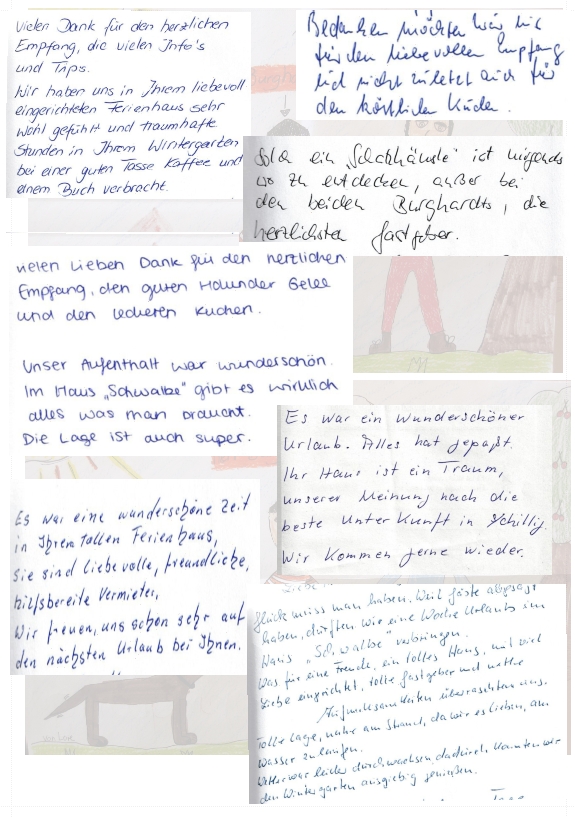 Vielen Dank für den herzlichen
Empfang, die vielen Info's
und Tips.
Wir haben uns in Ihrem liebevoll
eingerichteten Ferienhaus sehr
wohl gefühlt und traumhafte
Stunden in Ihrem Wintergarten
bei einer guten Tasse Kaffee und
einem Buch verbracht.
Bedanken möchten wir uns
für den liebevollen Empfang
und nicht zuletzt auch für
den köstlichen Kuchen.
ein ist nirgends
wo zu entdecken, außer bei
den beiden Burghardts, die
herzlichsten Gastgeber.
vielen Lieben Dank für den herzlichen
Empfang, den guten Holunder Gelee
und den leckeren Kuchen.
Unser Aufenthalt war wunderschön.
Im Haus „Schwalbe" gibt es wirklich
alles was man braucht.
Die Lage ist auch super.
Es war ein wunderschöner
Urlaub. Alles hat gepaßt.
Ihr Haus ist ein Traum,
unserer Meinung nach die
beste Unterkunft in Schillig.
Wir kommen gerne wieder.
Es war eine wunderschöne Zeit
in Ihrem tollen Ferienhaus,
Sie sind liebevolle, freundliche,
hilfsbereite Vermieter,
Wir freuen, uns schon sehr auf
den nächsten Urlaub bei Ihnen.
Glück muss man haben. Weil Gäste abgesagt
haben, durften wir eine Woche Urlaub im
Haus „Schwalbe" verbringen.
Was für eine Freude, ein tolles Haus, mit viel
Liebe eingerichtet, tolle Gastgeber und nette
Aufmerksamkeiten überraschten uns.
Tolle Lage, nahe am Strand, da wir es lieben, am
Wasser zu laufen.
Wetter war leider durchwachsen, dadurch konnten wir
den Wintergarten ausgiebig genießen.